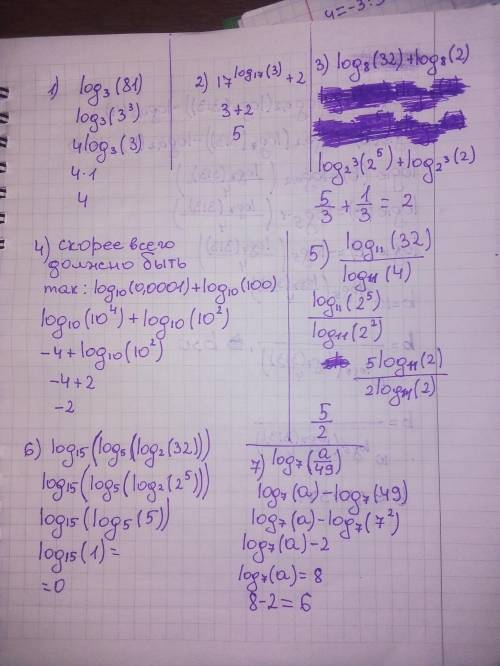 4=-3:
1) log₃(81)
log₃(3³)
4log₃(3)
4·1
4
2) 17^log₁₇(3) + 2
3+2
5
3) log₈(32)+log₈(2)
log₂³(2⁵)+log₂³(2)
5/3 + 1/3 = 2
4) скорее всего
должно быть
так: log₁₀(0,0001)+log₁₀(100)
log₁₀(10⁴)+log₁₀(10²)
-4+log₁₀(10²)
-4+2
-2
5) log₁₁(32)/log₁₁(4)
log₁₁(2⁵)/log₁₁(2²)
5log₁₁(2)/2log₁₁(2)
5/2
6) log₁₅(log₅(log₂(32)))
log₁₅(log₅(log₂(2⁵)))
log₁₅(log₅(5))
log₁₅(1)=
=0
7) log₇(a/49)
log₇(a)-log₇(49)
log₇(a)-log₇(7²)
log₇(a)-2
log₇(a)=8
8-2=6